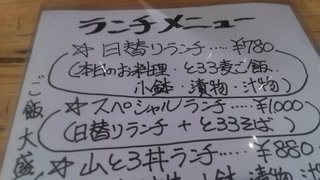 ランチメニュー
☆日替りランチ‥‥¥780
(本日のお料理・とろろ麦ご飯、
小鉢・漬物・汁物)
☆スペシャルランチ‥‥¥1000
(日替りランチ+とろろそば)
☆山とろ丼ランチ‥‥¥880
小鉢 漬物 汁物
ご飯大盛